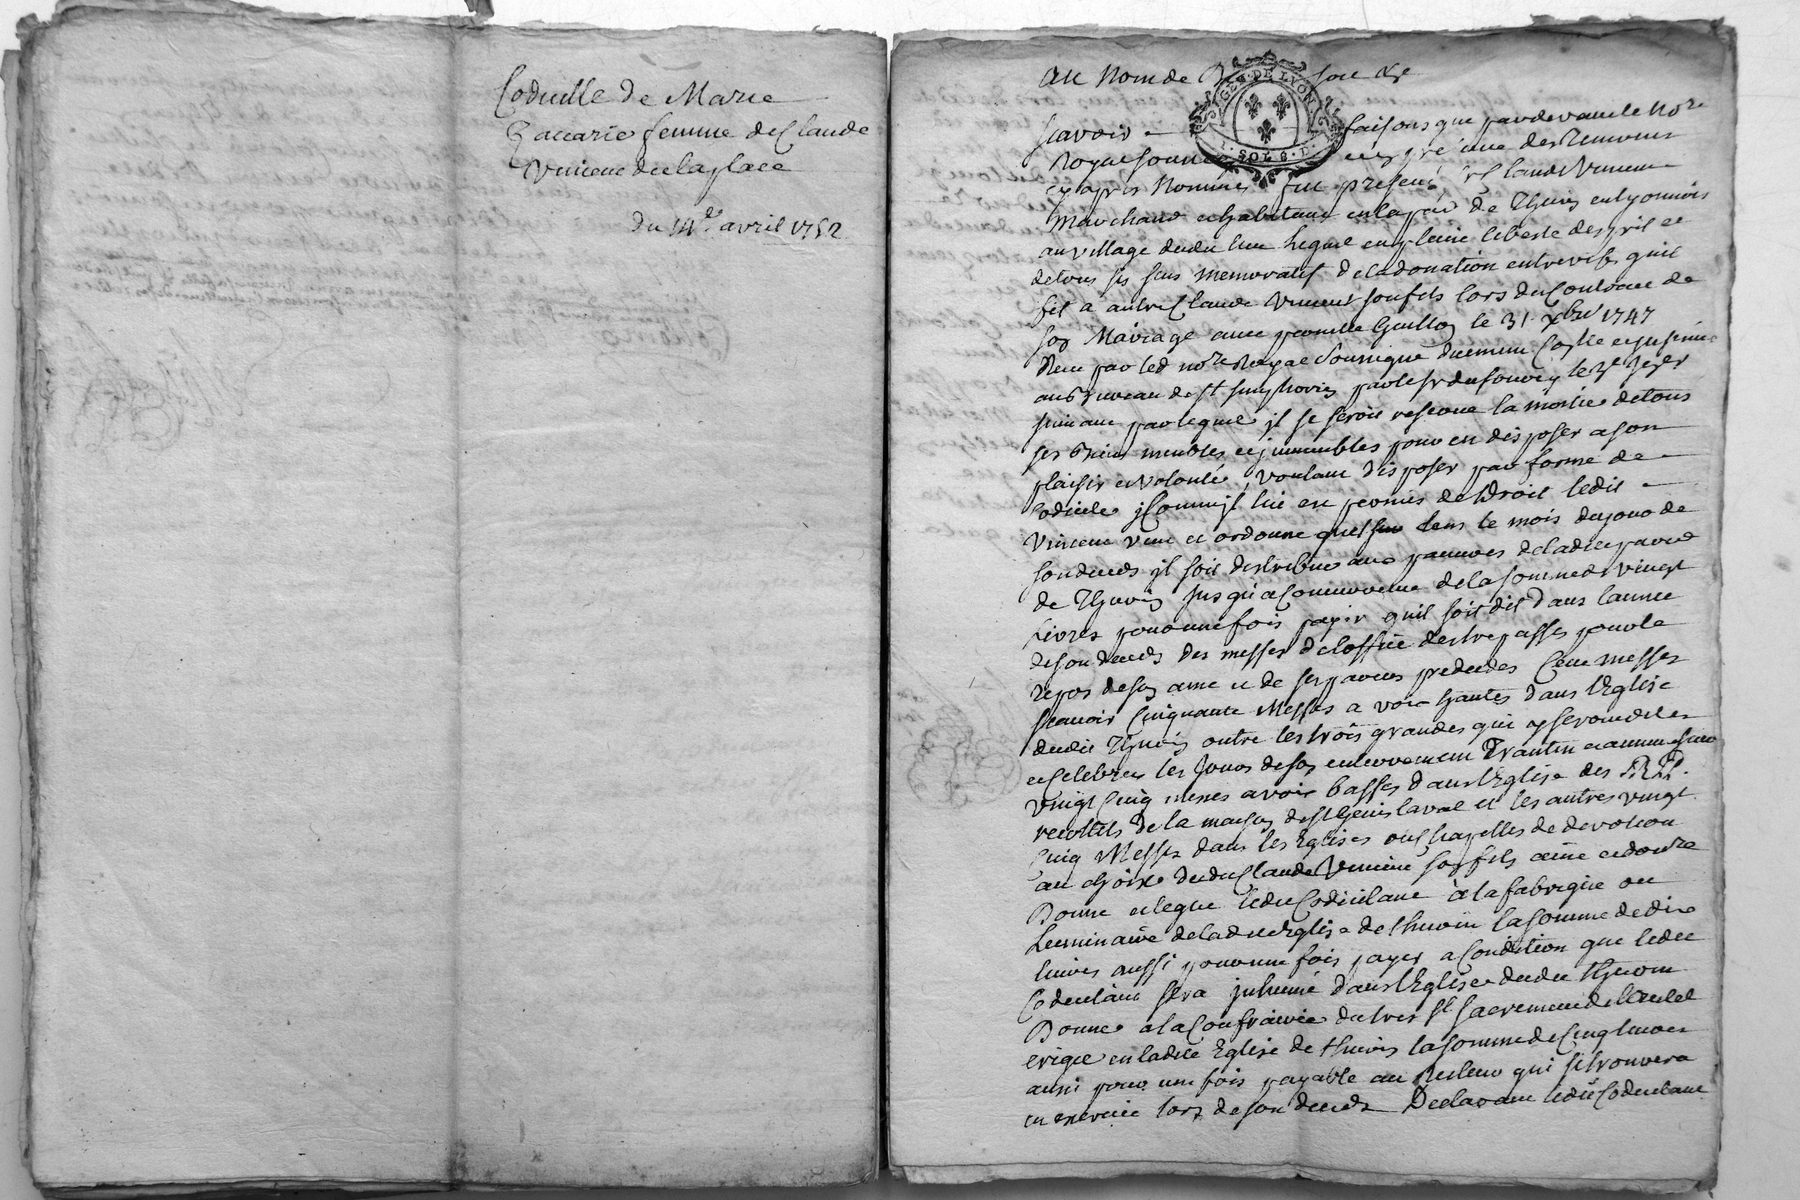 Codicille de Marie
Zacarie femme de Claude
Vincent delaplace
du 14e avril 1752
GEN. DE LYON
SOLS. D.
au nom de Dieu soit &e
scavoir faisons que pardevant le Nore
Royal sousne en presence des temoins
cy apres Nommes fut present Sr Claude Vincent
Marchand et habitant en la parr de Thurin en lyonnois
au village dudit lieu lequel en pleine liberté desprit et
de tous ses sens memoratif de la donation entrevifs quil
fit a autre Claude Vincent son fils lors du Contract de
son Mariage avec pernette Guillon le 31 xbre 1747
Recu par led nore Royal soussigné duement Controllé et jnsinué
au Bureau de St simphorien par le sr dufourney le
suivant par lequel jl se seroit reservé la moitié de tous
ses biens meubles et jmmeubles pour en disposer a son
plaisir et volonté, voulant disposer par forme de
Codicile comm'jl lui est permis de droit ledit
Vincent veut et ordonne que dans le mois du jour de
son decés jl soit distribué aux pauvres de ladite parr
de Thurin jusqu'a Concurrence de la somme de vingt
livres pour une fois payer quil soit dit dans l'année
de son decés des messes de loffice des trepassés pour le
repos de son ame et de ses parens predecedes Cent messes
scavoir Cinquante Messes a voix hautes dans l'Eglise
dudit Thurin outre les trois grandes qui y seront dites
et Celebrées les Jours de son enterrement Trantin et
vingt Cinq messes a voix basses dans l'Eglise des R.R.
recollets de la maison de St Genis laval et les autres vingt
Cinq Messes dans les Eglises ou Chapelles de devotion
au choix dudit Claude Vincent son fils ainé
Donne et legue ledit Codicilant à la fabrique ou
Luminaire de ladite Eglise de thurin la somme de dix
livres aussi pour une fois payer a Condition que ledit
Codicilant sera jnhumé dans l'Eglise dudit thurin
Donne a la Confrairie du tres St Sacrement de l'autel
erigée en ladite Eglise de thurin la somme de Cinq livres
aussi pour une fois payable au Recteur qui se trouvera
en exercice lors de son decés Declarant ledit Codicilant